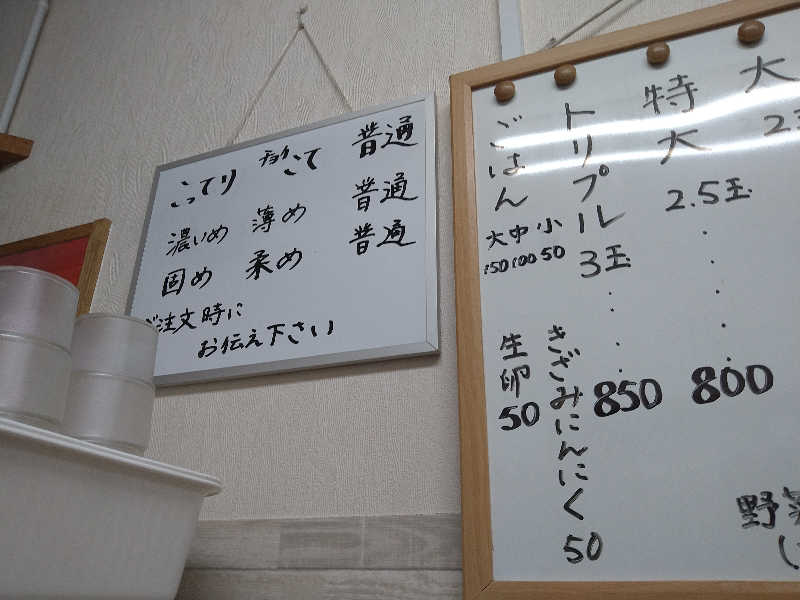 こってり チョイこて 普通
濃いめ 薄め 普通
固め 柔め 普通
ご注文時に
お伝え下さい
大
特大 2.5玉 ・・・・ 800
トリプル 3玉 ・・・・ 850
ごはん
大 中 小
150 100 50
きざみにんにく 50
生卵 50